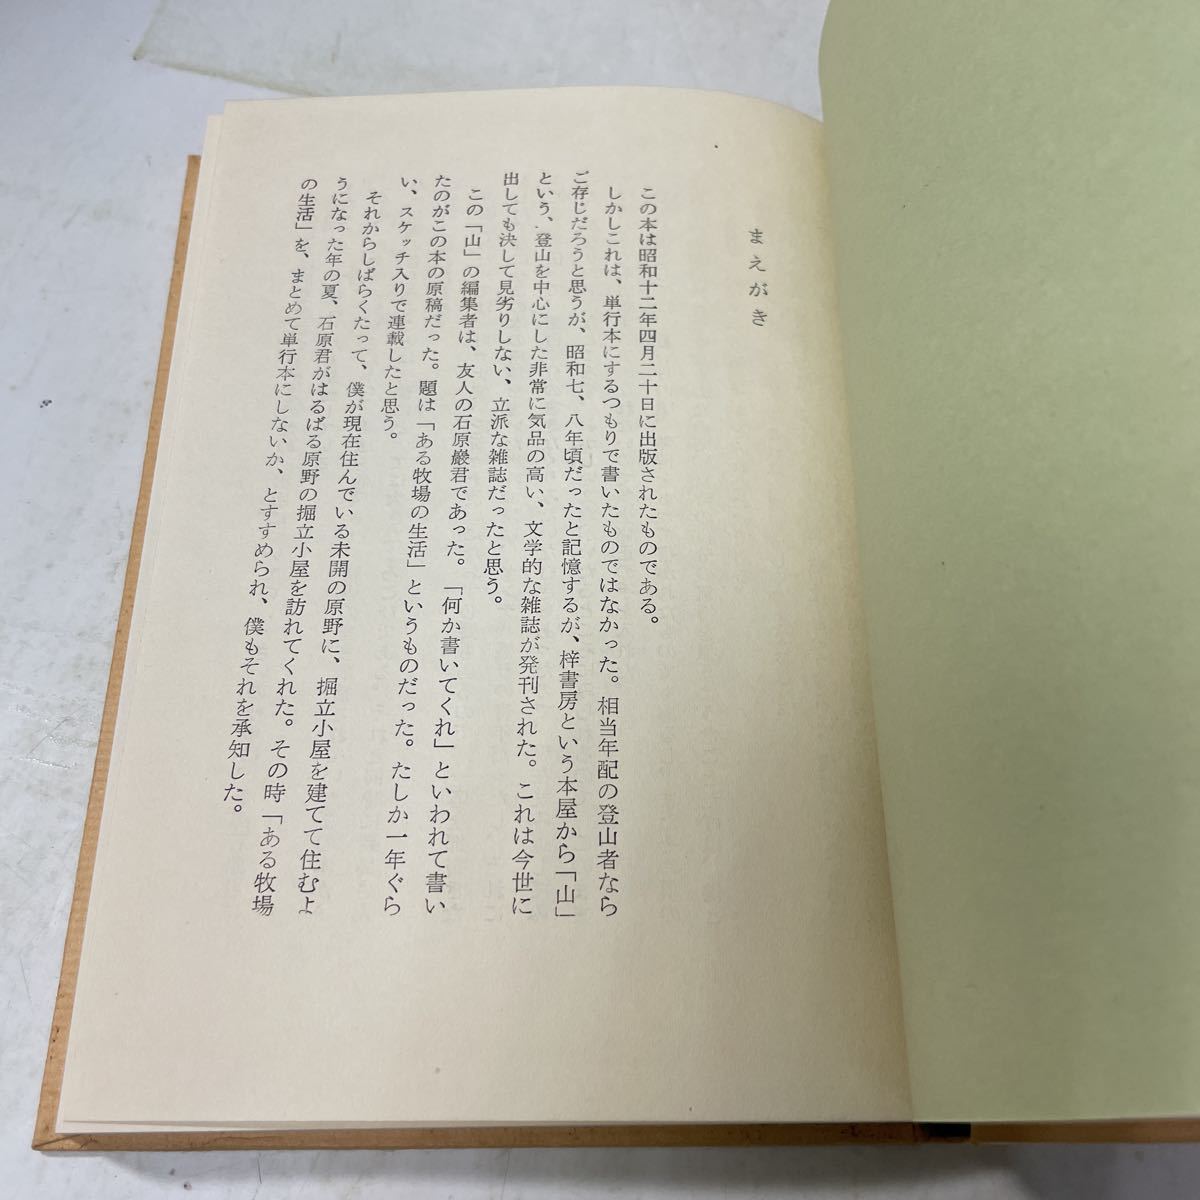 まえがき
この本は昭和十二年四月二十日に出版されたものである。
しかしこれは、単行本にするつもりで書いたものではなかった。相当年配の登山者なら
ご存じだろうと思うが、昭和七、八年頃だったと記憶するが、梓書房という本屋から「山」
という、登山を中心にした非常に気品の高い、文学的な雑誌が発刊された。これは今世に
出しても決して見劣りしない、立派な雑誌だったと思う。
この「山」の編集者は、友人の石原巌君であった。「何か書いてくれ」といわれて書い
たのがこの本の原稿だった。題は「ある牧場の生活」というものだった。たしか一年ぐら
い、スケッチ入りで連載したと思う。
それからしばらくたって、僕が現在住んでいる未開の原野に、掘立小屋を建てて住むよ
うになった年の夏、石原君がはるばる原野の掘立小屋を訪れてくれた。その時「ある牧場
の生活」を、まとめて単行本にしないか、とすすめられ、僕もそれを承知した。